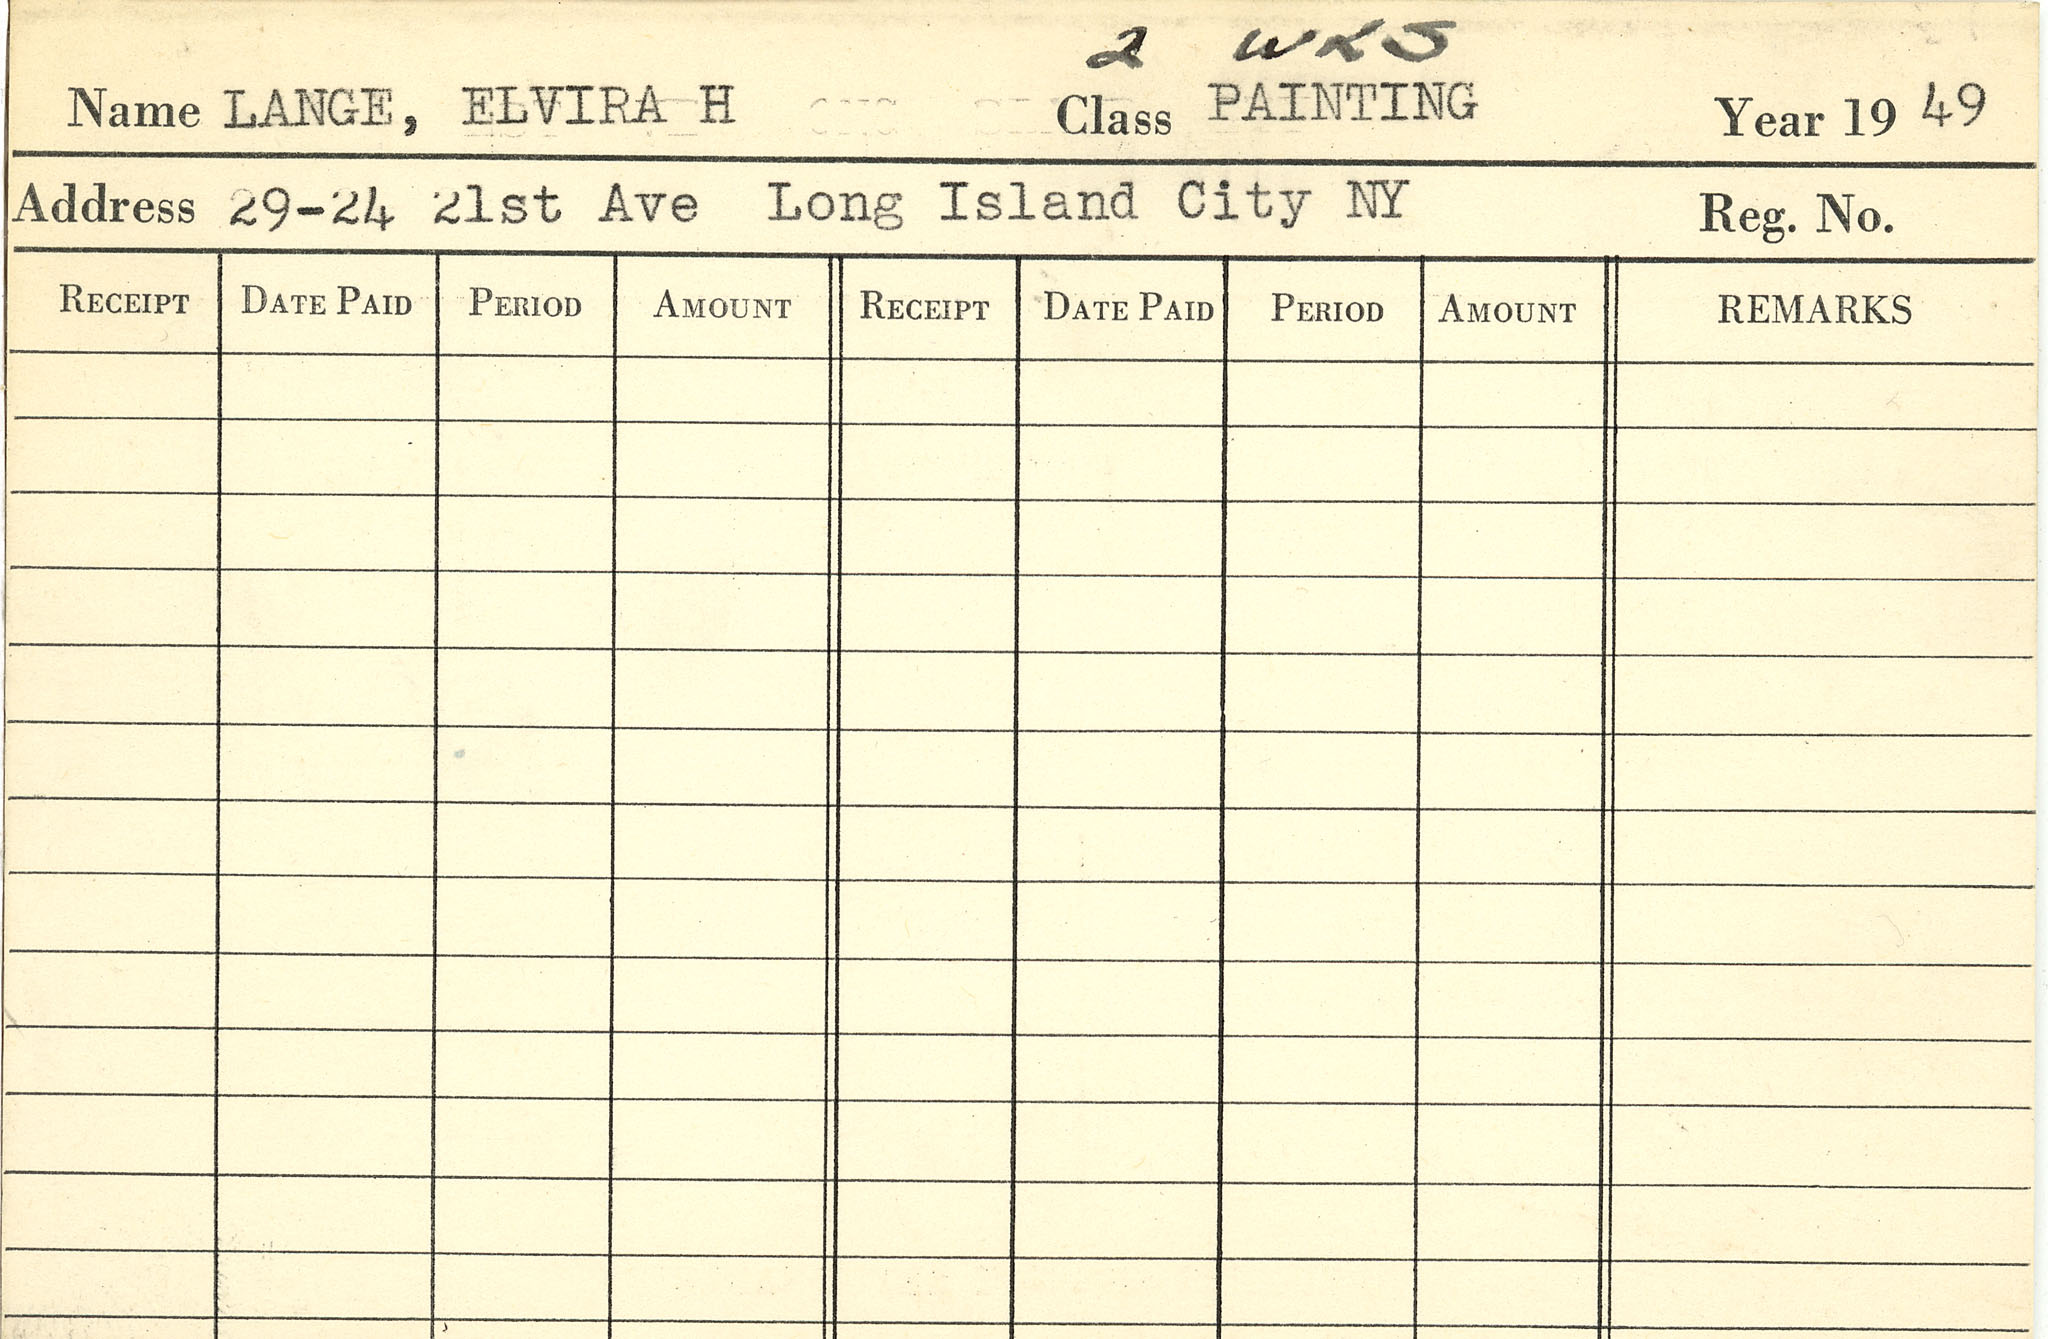 2 WKS
Name LANGE, ELVIRA H Class PAINTING Year 19 49
Address 29-24 21st Ave Long Island City NY Reg. No.
RECEIPT DATE PAID PERIOD AMOUNT RECEIPT DATE PAID PERIOD AMOUNT REMARKS